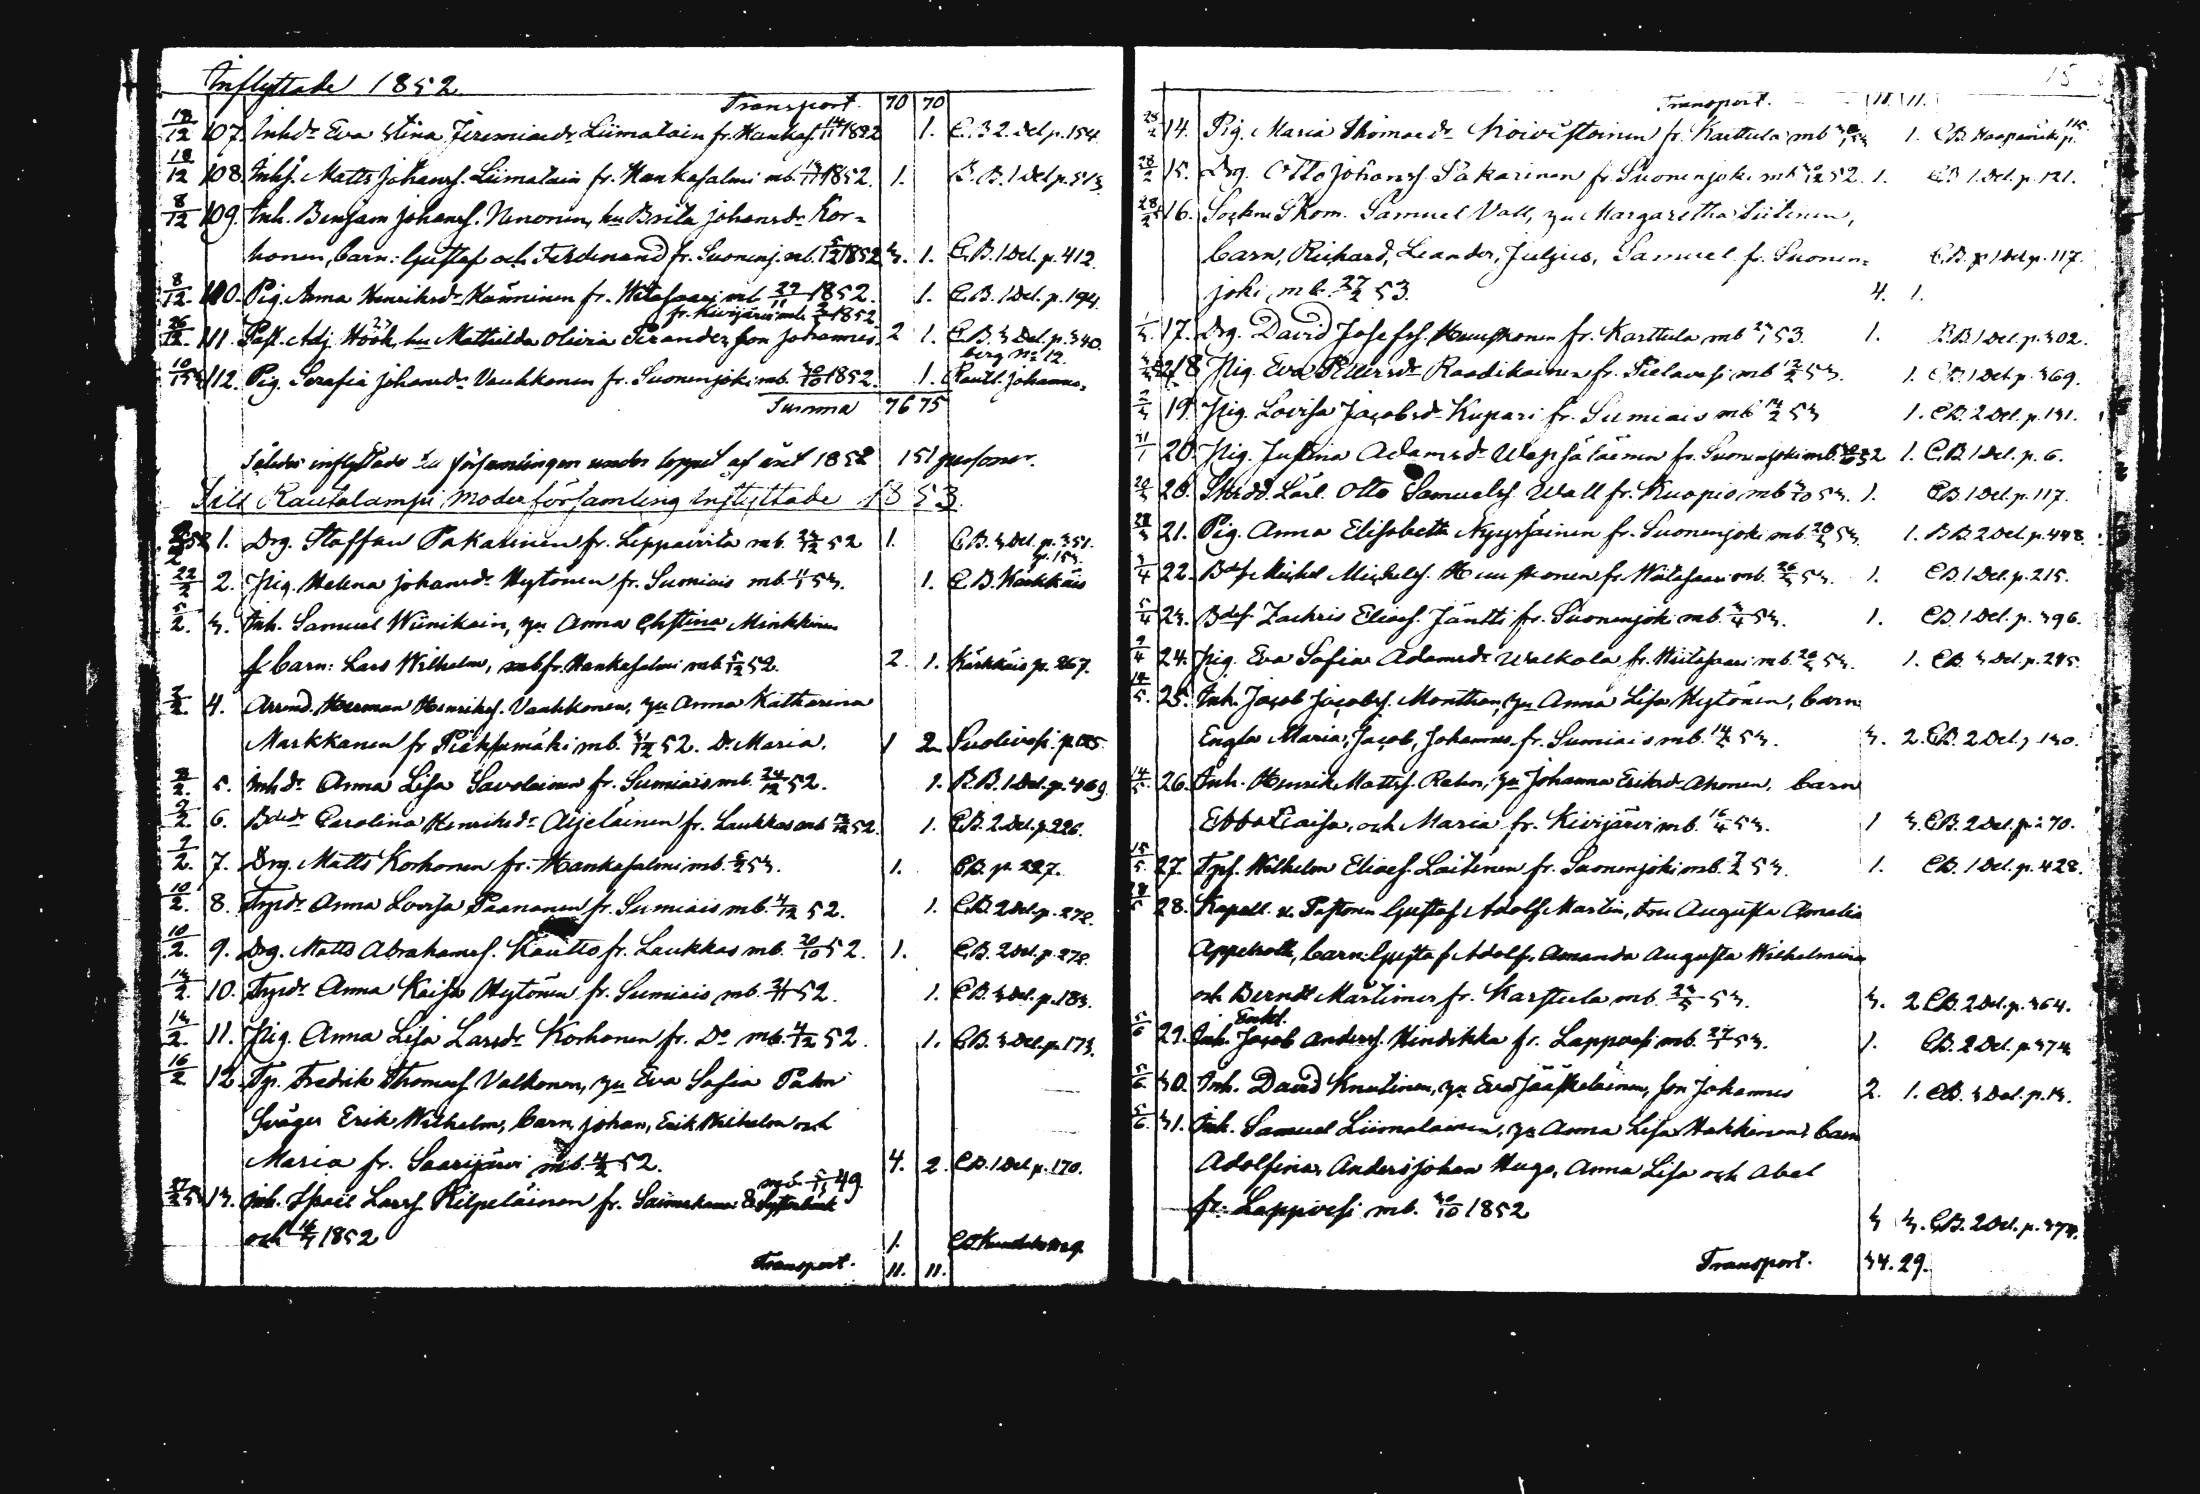 Inflyttade 1852
Transport. 70 70
18/12 107. Inhdr Eva Stina Jeremiædr Liimatain fr. Hankas. 14/11 1852 1. C.B. 2 Del p. 154.
18/12 108. Inhs. Matts Johanss. Liimatain fr. Hankasalmi mb. 1852. 1. B.B. 1 Del p. 513
8/12 109. Inh. Benjam Johanss. Neuonen, hu Brita Johansdr Kor-
honen, barn: Gustaf och Ferdinand fr. Suonenj. mb. 5/12 1852 3. 1. C.B. 1 Del. p. 412.
8/12 110. Pig. Anna Henriksdr Hänninen fr. Witasaari mb 22/11 1852. 1. C.B. 1 Del. p. 194.
fr. Kivijärvi mb. 1852
26/12 111. Past. Adj. Höök, hu Mathilda Olivia Terander son Johannes. 2 1. C.B. 3 Del. p. 340.
berg No 12.
10/1 53 112. Pig. Serafia Johansdr Vauhkonen fr. Suonenjoki mb. 30/10 1852. 1. Rautl. Johannes,
Summa 76 75
Således inflyttade till församlingen under loppet af året 1852 151 personer.
Till Rautalampi Moderförsamling Inflyttade 1853.
1. Drg. Staffan Pakarinen fr. Leppävirta mb. 52 1. C.B. 3 Del. p. 351.
p. 153.
22/2 2. Pig. Helena Johansdr Hytönen fr. Sumiais mb. 53. 1. C.B. Kärkkäis
5/2. 3. Inh. Samuel Wiinikain, hu Anna Christina Minkkinen
f barn: Lars Wilhelm, mb fr. Hankasalmi mb. 5/12 52. 2. 1. Kärkkäis p. 267.
2/2. 4. Arrend. Herman Henrikss. Vauhkonen, hu Anna Katharina
Markkanen fr Pieksamäki mb. 31/12 52. D. Maria. 1 2. Suolivesi p.
5. Inhdr Anna Lisa Savolainen fr. Sumiais mb. 24/12 52. 1. B.B. 1 Del. p. 469.
2/2. 6. Bdedr Carolina Henriksdr Aijeläinen fr. Laukkas mb. 52. 1. C.B. 2 Del. p. 226.
7/2. 7. Drg. Matts Korhonen fr. Hankasalmi mb. 53. 1. C.B. p. 227.
10/2. 8. Trpdr Anna Lovisa Paananen fr. Sumiais mb. 4/12 52. 1. C.B. 2 Del. p. 272.
10/2. 9. Drg. Matts Abrahamss. Kautto fr. Laukkas mb. 20/10 52. 1. C.B. 2 Del. p. 272.
13/2. 10. Trpdr Anna Kaisa Hytönen fr. Sumiais mb. 52. 1. C.B. 3 Del. p. 183.
13/2. 11. Pig. Anna Lisa Larsdr Korhonen fr. Do mb. 4/12 52. 1. C.B. 3 Del. p. 173.
16/2 12. Tp. Fredrik Thomass Valkonen, hu Eva Sofia Palm
Svåger Erik Wilhelm, barn, Johan, Erik Wilhelm och
Maria fr. Saarijärvi mb. 52. 4. 2. C.B. 1 Del p. 170.
mb. 49.
13. Inh. Israël Larss. Kilpeläinen fr.
och 1852 1.
Transport. 11. 11.
15
Transport. 11. 11.
28/2 14. Pig. Maria Thomasdr Koivistoinen fr. Karttula mb 53 1. C.B. p. 115.
28/2 15. Drg. Otto Johanss. Pakarinen fr Suonenjoki mb 52. 1. C.B. 1. Del. p. 121.
28/2 16. Sockne Skom. Samuel Vall, hu Margaretha Tiitinen,
barn, Richard, Leander, Juljus, Samuel fr. Suonen-
C.B. p 1 Del p. 117.
joki mb. 27/2 53. 4. 1.
1/3. 17. Drg. David Josefss. Huuskonen fr. Karttula mb 53. 1. B.B 1 Del. p. 302.
18. Pig. Eva Pettersdr Raadikainen fr. Pielavesi mb 53. 1. C.B. 1 Del. p. 369.
2/3 19. Pig. Lovisa Jacobsdr Kupari fr. Sumiais mb 53 1. C.B. 2 Del. p. 131.
31/1 20. Pig. Justina Adamsdr fr. Suonenjoki mb. 52 1. C.B. 1 Del. p. 6.
20/3 20. Skrdd. Lärl. Otto Samuelss. Wall fr. Kuopio mb 53. 1. C.B. 1 Del. p. 117.
21. Pig. Anna Elisabeth Nyyssäinen fr. Suonenjoki mb. 53. 1. B.B. 2 Del. p. 448.
3/4 22. Bdes Michel Michelss. Huuskonen fr. Witasaari mb. 53. 1. C.B. 1 Del. p. 215.
5/4 23. Bdes Zachris Eliass. Jäntti fr. Suonenjoki mb. 3/4 53. 1. C.B. 1 Del. p. 396.
9/4 24. Pig. Eva Sofia Adamsdr Walkola fr. Wiitasaari mb. 53. 1. C.B. 3 Del. p. 245.
25. Inh. Jacob Jacobss. Monthan, hu Anna Lisa Hytönen, barn
Engla Maria, Jacob, Johannes fr. Sumiais mb. 53. 3. 2. C.B. 2 Del. p. 130.
14/5. 26. Inh. Henrik Mattss. Rahm, hu Johanna Eriksdr Ahonen, barn
Ebba Caisa, och Maria fr. Kivijärvi mb. 16/4 53. 1 3. C.B. 2 Del. p. 270.
15/5 27. Tps. Wilhelm Eliass. Laitinen fr. Suonenjoki mb. 53. 1. C.B. 1 Del. p. 428.
28. Kapell. v. Pastorn Gustaf Adolf Martin, Fru Augusta Amalia
Appelroth, barn: Gustaf Adolf, Amanda Augusta Wilhelmina
och Berndt Martimer fr. Karstula mb. 53. 3. 2 C.B. 2 Del. p. 364.
Enkl.
5/6 29. Inh. Jacob Anderss. Hindikka fr. Lappvesi mb. 53. 1. C.B. 2 Del. p. 374
5/6 30. Inh. David Knutinen, hu Eva Jääskeläinen, son Johannes 2. 1. C.B. 3 Del. p. 13.
5/6. 31. Inh. Samuel Liimatainen, hu Anna Lisa Hakkinen, barn
Adolfina, Anders Johan Hugo, Anna Lisa och Abel
fr. Lappvesi mb. 30/10 1852 3 3. C.B. 2 Del. p. 374.
Transport. 34. 29.